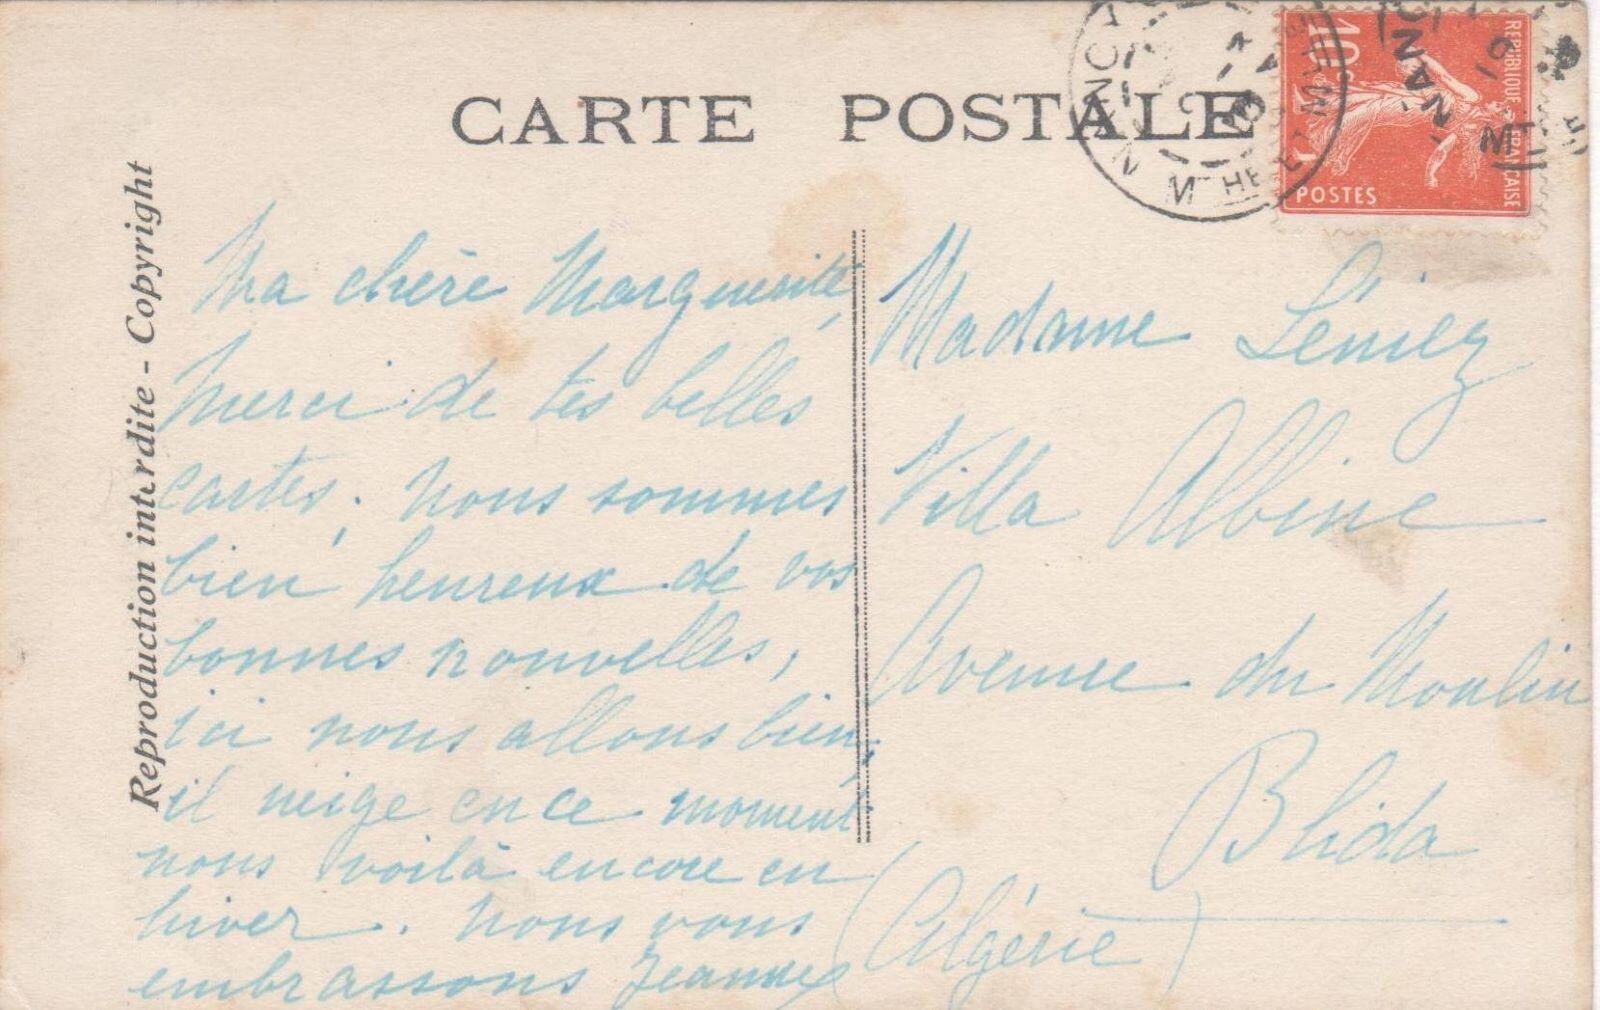 CARTE POSTALE
Reproduction interdite - Copyright
NANCY
MTHE ET MLLE
10c
REPUBLIQUE FRANÇAISE
POSTES
NANC
Ma chère Marguerite,
Merci de tes belles
cartes; nous sommes
bien heureux de vos
bonnes nouvelles,
ici nous allons bien;
il neige en ce moment
nous voilà encore en
hiver. Nous vous
embrassons Jeanne
Madame
Villa Albine
Avenue du Moulin
Blida
(Algérie)